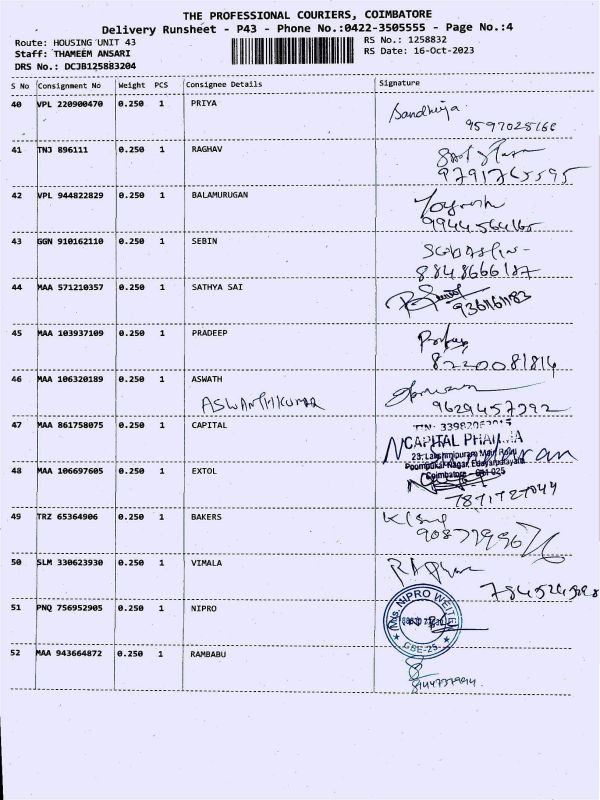 THE PROFESSIONAL COURIERS, COIMBATORE
Delivery Runsheet - P43 - Phone No.:0422-3505555 - Page No.:4
Route: HOUSING UNIT 43
RS No.: 1258832
Staff: THAMEEM ANSARI
RS Date: 16-Oct-2023
DRS No.: DCJB125883204
S No Consignment No Weight PCS Consignee Details Signature
40 VPL 220900470 0.250 1 PRIYA Sandhiya
9597025166
41 TNJ 896111 0.250 1 RAGHAV
9791765595
42 VPL 944822829 0.250 1 BALAMURUGAN
9944564165
43 GGN 910162110 0.250 1 SEBIN
8848666187
44 MAA 571210357 0.250 1 SATHYA SAI
9361161183
45 MAA 103937109 0.250 1 PRADEEP
8220081814
46 MAA 106320189 0.250 1 ASWATH
ASWANTHKUMAR
9629457392
47 MAA 861758075 0.250 1 CAPITAL
CAPITAL PHARMA
23, Lakshmipuram Main Road
Poompukar Nagar, Edayarpalayam
Coimbatore - 641 025
48 MAA 106697605 0.250 1 EXTOL
7871727044
49 TRZ 65364906 0.250 1 BAKERS
50 SLM 330623930 0.250 1 VIMALA
51 PNQ 756952905 0.250 1 NIPRO
M/s. NIPRO
CBE-25
52 MAA 943664872 0.250 1 RAMBABU